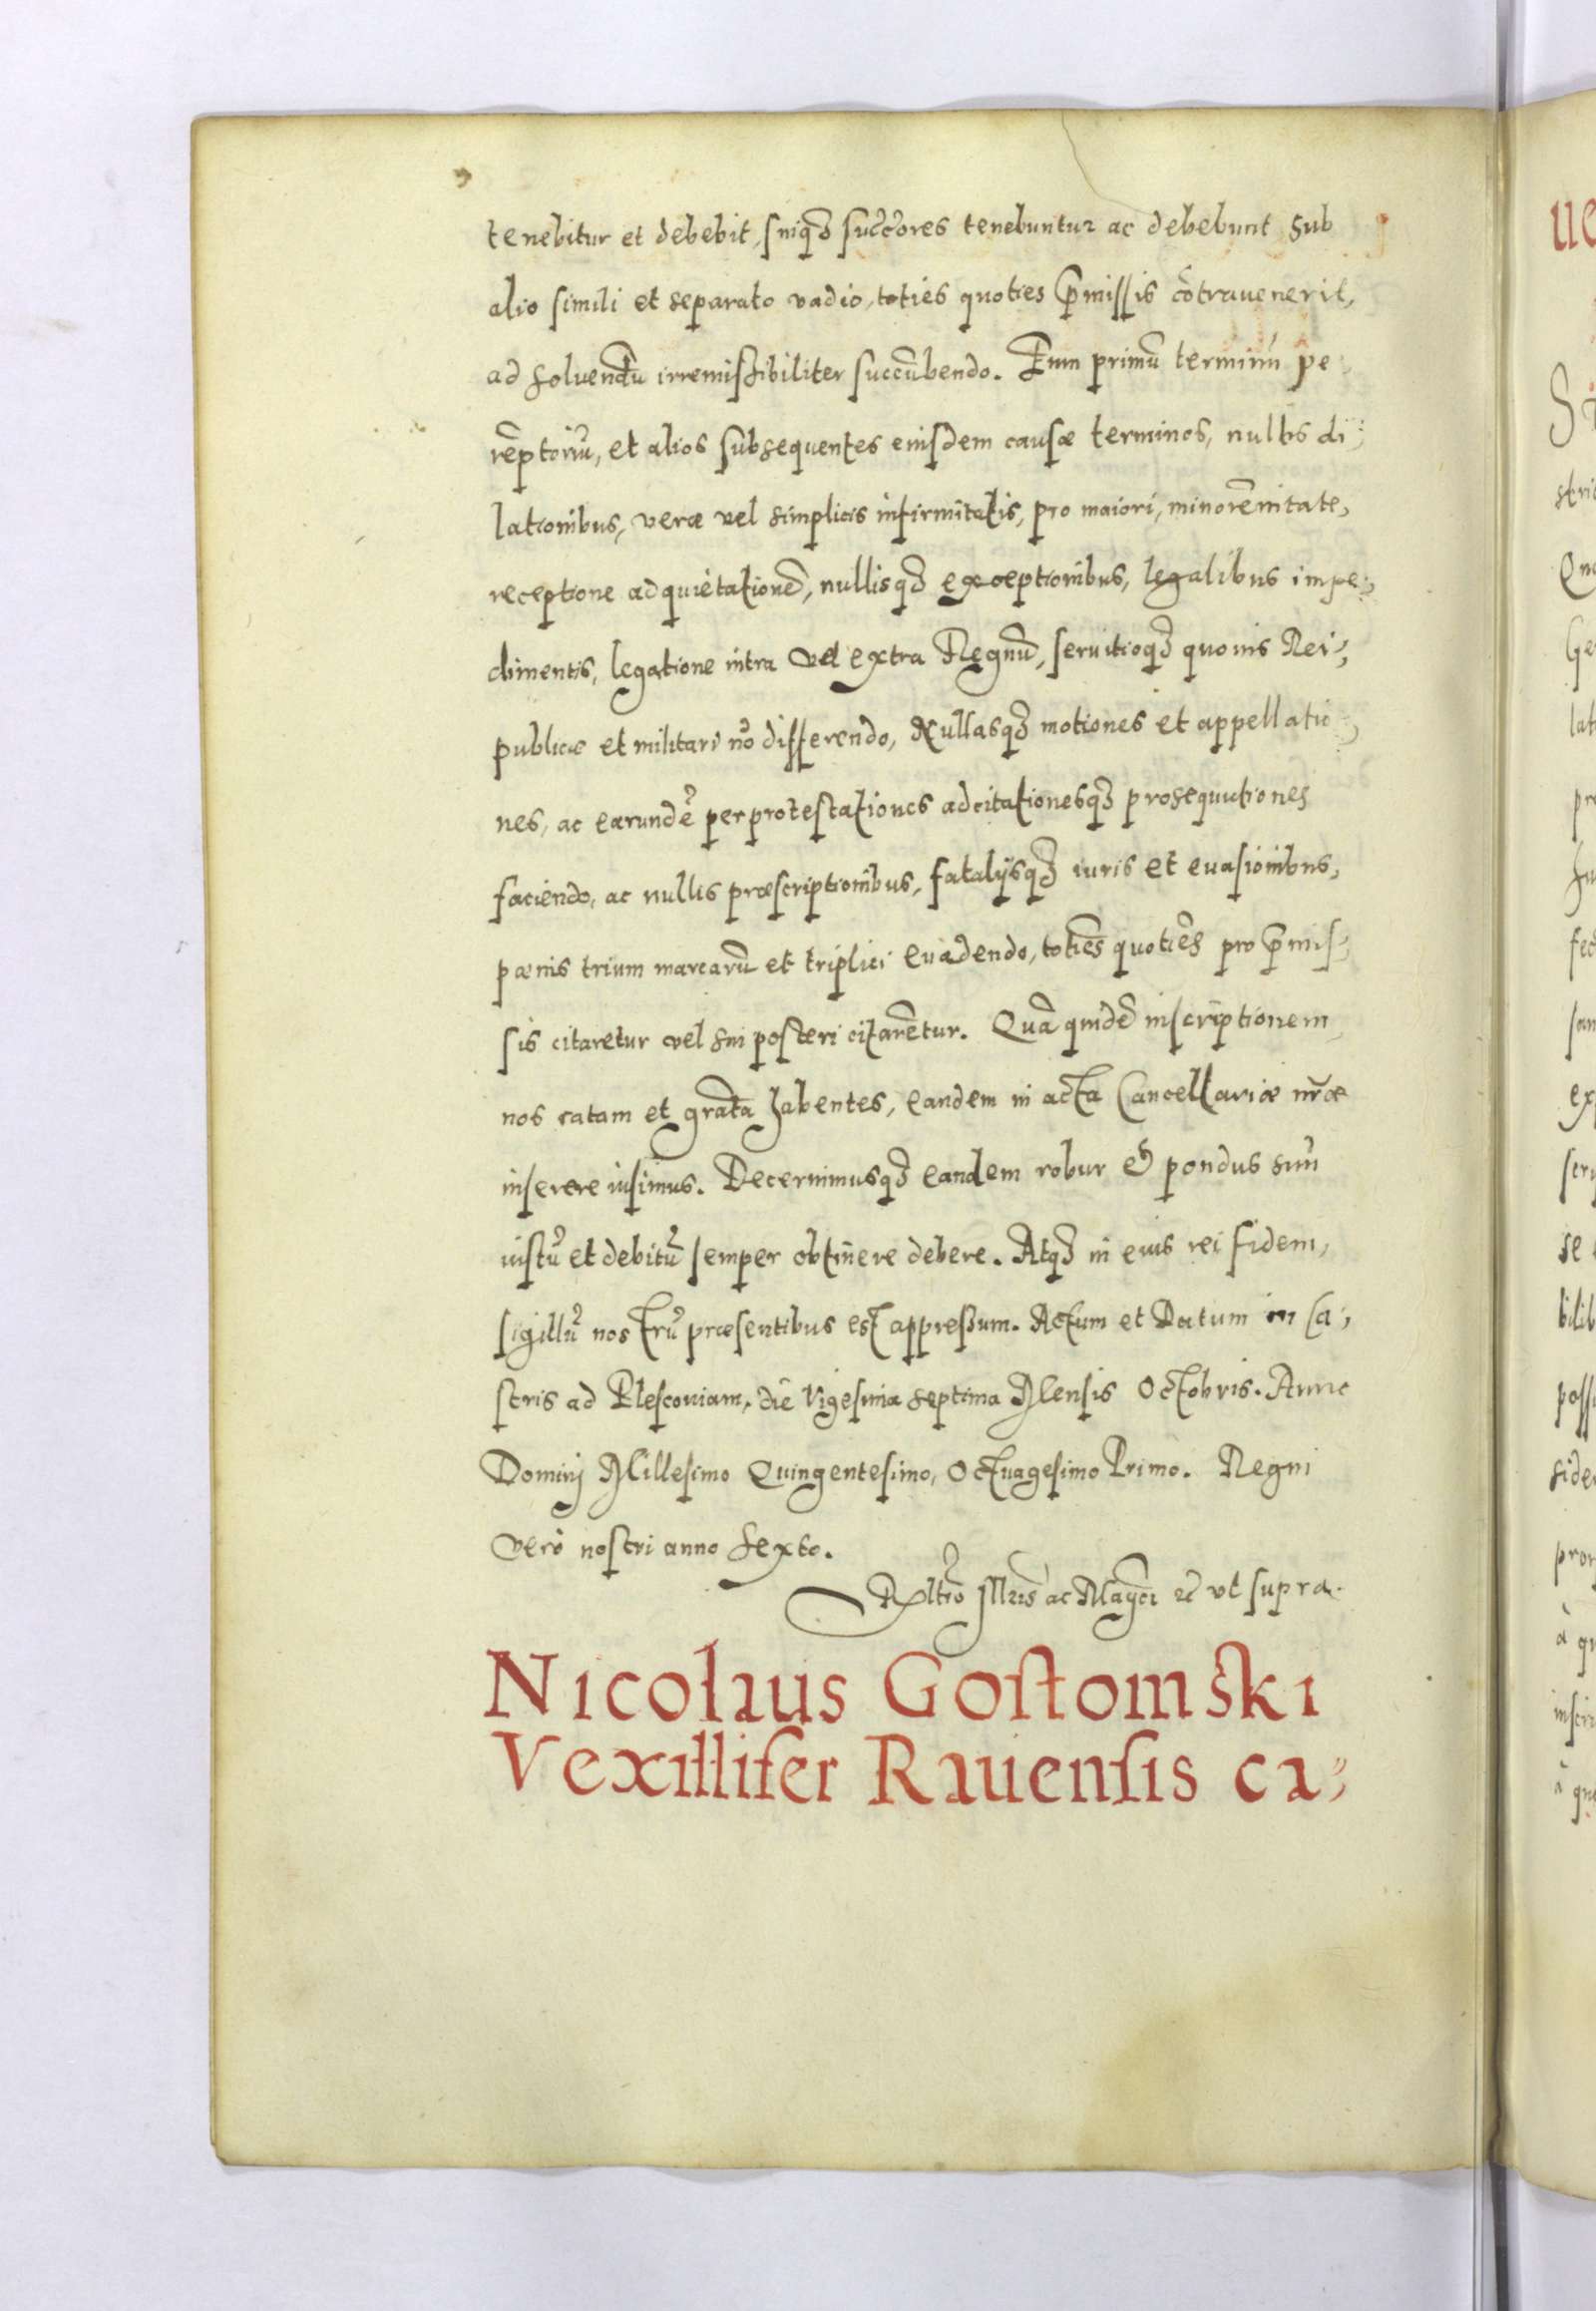 tenebitur et debebit, suiq₃ succ̃ores tenebuntur ac debebunt sub
alio simili et separato vadio, toties quoties p̃missis cõtravenerit,
ad soluendũ irremissibiliter succũbendo. Eum primũ terminũ pe-
rẽptoriũ, et alios subsequentes eiusdem causæ terminos, nullis di-
lationibus, veræ vel simplicis infirmitatis, pro maiori, minorẽnitate,
receptione ad quietationẽ, nullisq₃ exceptionibus, legalibus impe-
dimentis, legatione intra vel extra Regnũ, seruitioq₃ quouis Rei-
publicæ et militari nõ differendo, Nullasq₃ motiones et appellatio-
nes, ac earundẽ per protestationes ad citationesq₃ prosequutiones
faciendo, ac nullis præscriptionibus, fatalijsq₃ iuris et euasionibus,
pænis trium marcarũ et triplici euadendo, totiẽs quotiẽs pro p̃mis-
sis citaretur vel sui posteri citarẽtur. Quã quidẽ inscriptionem
nos ratam et gratã habentes, eandem in acta Cancellariæ nr̃æ
inserere iusimus. Decernimusq₃ eandem robur et pondus suũ
iustũ et debitũ semper obtinere debere. Atq₃ in eius rei fidem,
sigillũ nostrũ præsentibus est appressum. Actum et Datum in Ca-
stris ad Plescouiam, die Vigesima septima Mensis Octobris. Anno
Dominj Millesimo Quingentesimo, Octuagesimo Primo. Regni
vero nostri anno sexto.
Rltĩo Illr̃is ac Magc̃i &c̃ vt supra.
Nicolaus Gostomski
Vexillifer Rauensis ca-